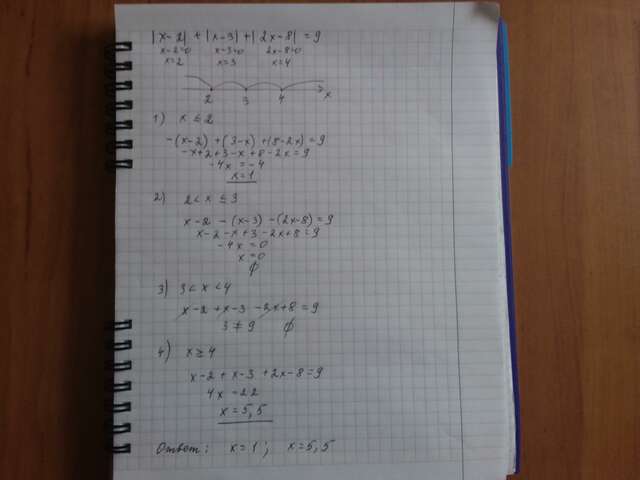 |x-2| + |x-3| + |2x-8| = 9
x-2=0 x-3=0 2x-8=0
x=2 x=3 x=4
2 3 4 x
1) x ≤ 2
-(x-2) + (3-x) + (8-2x) = 9
-x+2+3-x+8-2x=9
-4x = -4
x=1
2) 2 < x ≤ 3
x-2 - (x-3) - (2x-8) = 9
x-2-x+3-2x+8=9
-4x=0
x=0
∅
3) 3 < x < 4
x-2+x-3-2x+8=9
3 ≠ 9 ∅
4) x ≥ 4
x-2+x-3+2x-8=9
4x=22
x=5,5
Ответ: x=1; x=5,5